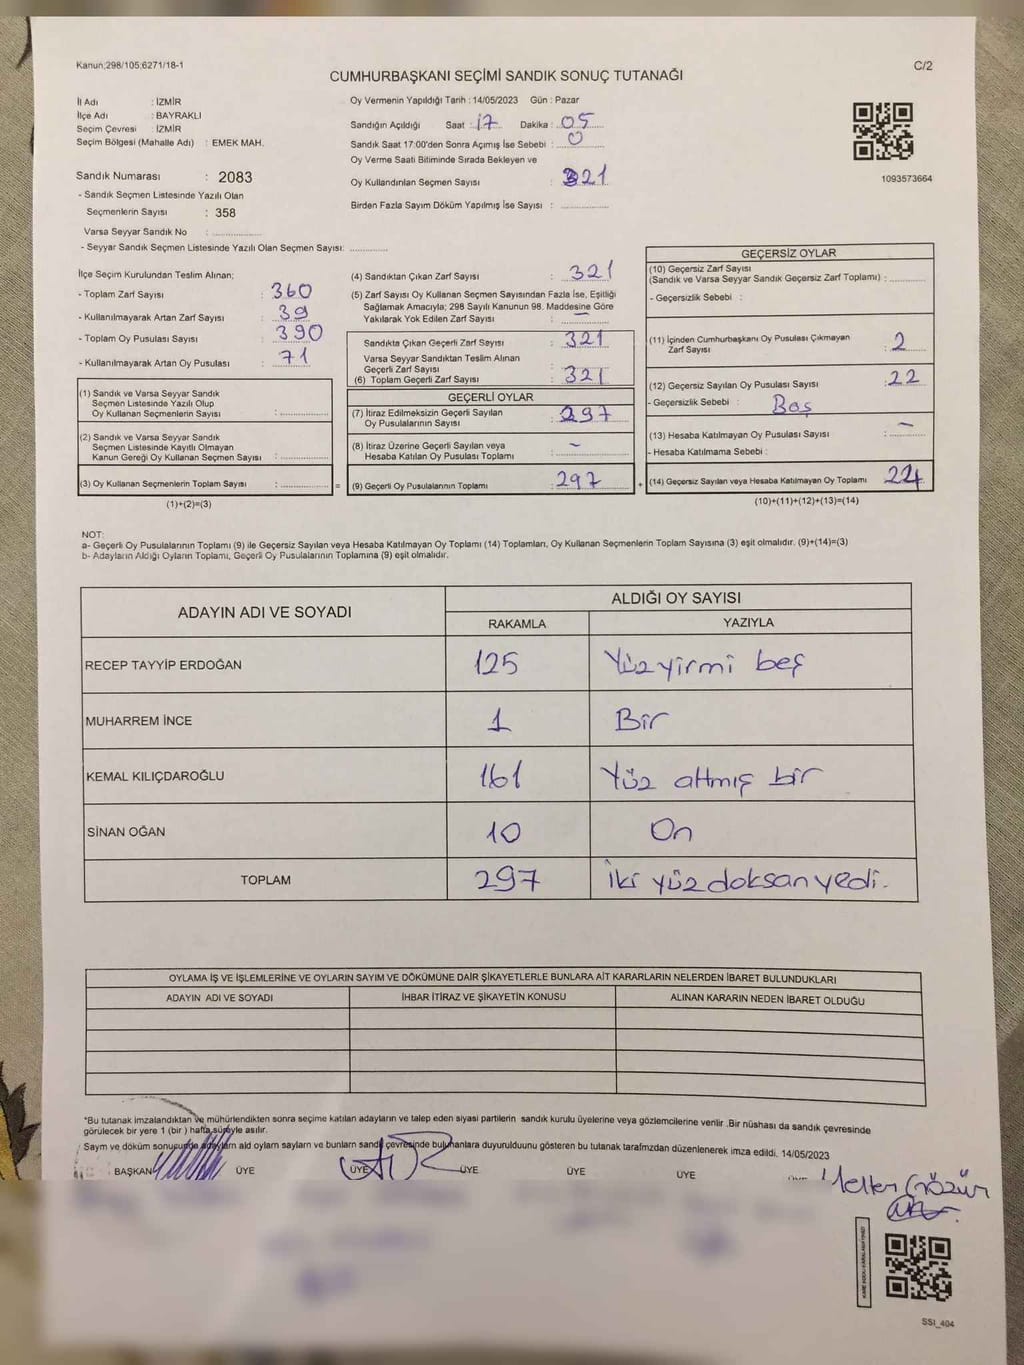 Kanun;298/105;6271/18-1
C/2
CUMHURBAŞKANI SEÇİMİ SANDIK SONUÇ TUTANAĞI
İl Adı : İZMİR
İlçe Adı : BAYRAKLI
Seçim Çevresi : İZMİR
Seçim Bölgesi (Mahalle Adı) : EMEK MAH.
Sandık Numarası : 2083
- Sandık Seçmen Listesinde Yazılı Olan
Seçmenlerin Sayısı : 358
Varsa Seyyar Sandık No :
- Seyyar Sandık Seçmen Listesinde Yazılı Olan Seçmen Sayısı:
Oy Vermenin Yapıldığı Tarih : 14/05/2023 Gün : Pazar
Sandığın Açıldığı Saat : 17 Dakika : 05
Sandık Saat 17:00'den Sonra Açılmış İse Sebebi : 0
Oy Verme Saati Bitiminde Sırada Bekleyen ve
Oy Kullandırılan Seçmen Sayısı : 321
Birden Fazla Sayım Döküm Yapılmış İse Sayısı :
1093573664
İlçe Seçim Kurulundan Teslim Alınan;
- Toplam Zarf Sayısı : 360
- Kullanılmayarak Artan Zarf Sayısı : 39
- Toplam Oy Pusulası Sayısı : 390
- Kullanılmayarak Artan Oy Pusulası : 71
(1) Sandık ve Varsa Seyyar Sandık
Seçmen Listesinde Yazılı Olup
Oy Kullanan Seçmenlerin Sayısı :
(2) Sandık ve Varsa Seyyar Sandık
Seçmen Listesinde Kayıtlı Olmayan
Kanun Gereği Oy Kullanan Seçmen Sayısı :
(3) Oy Kullanan Seçmenlerin Toplam Sayısı :
=
(1)+(2)=(3)
(4) Sandıktan Çıkan Zarf Sayısı : 321
(5) Zarf Sayısı Oy Kullanan Seçmen Sayısından Fazla İse, Eşitliği
Sağlamak Amacıyla; 298 Sayılı Kanunun 98. Maddesine Göre
Yakılarak Yok Edilen Zarf Sayısı : –
Sandıkta Çıkan Geçerli Zarf Sayısı : 321
Varsa Seyyar Sandıktan Teslim Alınan
Geçerli Zarf Sayısı :
(6) Toplam Geçerli Zarf Sayısı : 321
GEÇERLİ OYLAR
(7) İtiraz Edilmeksizin Geçerli Sayılan
Oy Pusulalarının Sayısı : 297
(8) İtiraz Üzerine Geçerli Sayılan veya
Hesaba Katılan Oy Pusulası Toplamı : –
(9) Geçerli Oy Pusulalarının Toplamı : 297
+
GEÇERSİZ OYLAR
(10) Geçersiz Zarf Sayısı
(Sandık ve Varsa Seyyar Sandık Geçersiz Zarf Toplamı) :
- Geçersizlik Sebebi :
(11) İçinden Cumhurbaşkanı Oy Pusulası Çıkmayan
Zarf Sayısı : 2
(12) Geçersiz Sayılan Oy Pusulası Sayısı : 22
- Geçersizlik Sebebi : Boş
(13) Hesaba Katılmayan Oy Pusulası Sayısı : –
- Hesaba Katılmama Sebebi :
(14) Geçersiz Sayılan veya Hesaba Katılmayan Oy Toplamı 24
(10)+(11)+(12)+(13)=(14)
NOT:
a- Geçerli Oy Pusulalarının Toplamı (9) ile Geçersiz Sayılan veya Hesaba Katılmayan Oy Toplamı (14) Toplamları, Oy Kullanan Seçmenlerin Toplam Sayısına (3) eşit olmalıdır. (9)+(14)=(3)
b- Adayların Aldığı Oyların Toplamı, Geçerli Oy Pusulalarının Toplamına (9) eşit olmalıdır.
ADAYIN ADI VE SOYADI ALDIĞI OY SAYISI
RAKAMLA YAZIYLA
RECEP TAYYİP ERDOĞAN 125 Yüz yirmi beş
MUHARREM İNCE 1 Bir
KEMAL KILIÇDAROĞLU 161 Yüz altmış bir
SİNAN OĞAN 10 On
TOPLAM 297 İki yüz doksan yedi.
OYLAMA İŞ VE İŞLEMLERİNE VE OYLARIN SAYIM VE DÖKÜMÜNE DAİR ŞİKAYETLERLE BUNLARA AİT KARARLARIN NELERDEN İBARET BULUNDUKLARI
ADAYIN ADI VE SOYADI İHBAR İTİRAZ VE ŞİKAYETİN KONUSU ALINAN KARARIN NEDEN İBARET OLDUĞU
*Bu tutanak imzalandıktan ve mühürlendikten sonra seçime katılan adayların ve talep eden siyasi partilerin sandık kurulu üyelerine veya gözlemcilerine verilir .Bir nüshası da sandık çevresinde
görülecek bir yere 1 (bir ) hafta süreyle asılır.
Sayım ve döküm sonucunda adayların ald oylarn sayların ve bunlarn sandı çevresinde bulunanlara duyurulduunu gösteren bu tutanak tarafmzdan düzenlenerek imza edildi. 14/05/2023
BAŞKAN ÜYE ÜYE ÜYE ÜYE ÜYE
SSI_404